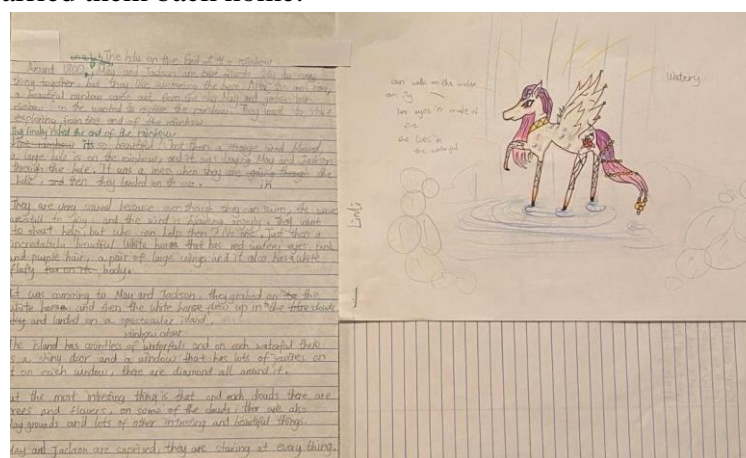 arried them back home.
The hole on the End of the rainbow
Around 1800, May and Jackson are best friends they do every
thing together, but they like swimming the best. After
a beautiful rainbow came out from the sky May and Jackson
rainbow, so they wanted to explore the rainbow. They want to start
exploring from the end of the rainbow.
They finally reached the end of the rainbow
its so beautiful, but then a strange wind blowed,
a large hole is on the rainbow, and it was draging May and Jackson
through the hole. It was a mess when they are going through the
hole, and then they landed on the sea.
They are very scared because even though they can swim, the waves
are still to big, and the wind is blowing insanely. They want
to shout help, but who can help them? No one. Just then a
incredabely beautiful white horse that has red watery eyes, pink
and purple hair, a pair of large wings and it also has white
fluffy body.
It was comming to May and Jackson, they grabed on to the
white horse, and then the white horse flew up in the clouds
sky and landed on a spectacular island.
rainbow above
The island has countless of waterfalls and on each waterfall there
is a shiny door and a window that has lots of rubies on
it on each window, there are diamond all around it.
But the most intresting thing is that and each clouds there are
trees and flowers, on some of the clouds, ther are also
play grounds and lots of other intresting and beautiful things.
May and Jackson are suprised, they are staring at every thing.
can walk on the water
on
her eyes is made of
fire
she lives in
the waterfall
Watery